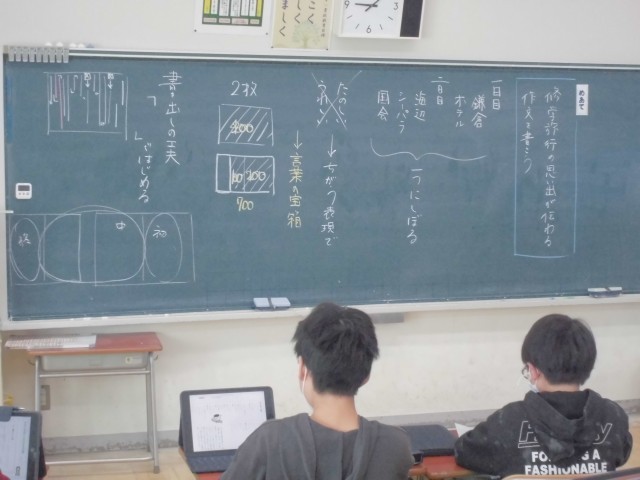 めあて
修学旅行の思い出が伝わる
作文を書こう
一日目
鎌倉
ホテル
二日目
海辺
シーパラ
国会
一つにしぼる
たのしい
うれしい
→ちがう表現で
→言葉の宝箱
2枚
400
300
700
書き出しの工夫
「 」ではじめる
初
中
終
FASHIONABLE